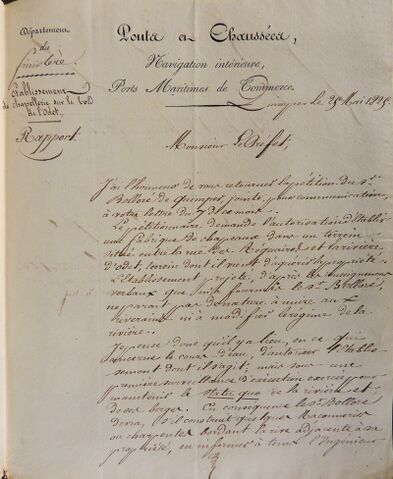 Département
du
finistère
Établissement
de chapellerie sur le bord
de l'Odet.
Rapport.
Ponts et Chaussées,
Navigation intérieure,
Ports Maritimes de Commerce.
Quimper le 25 Mai 1825.
Monsieur Le Préfet,
J'ai l'honneur de vous retourner la pétition du Sr.
Bolloré de Quimper, jointe, pour communication,
à votre lettre du 7 de ce mois.
Le pétitionnaire demande l'autorisation d'établir
une fabrique de chapeaux dans un terrein
situé entre la rue des Réguaires et la rivière
d'Odet, terrein dont il vient d'acquérir la propriété.
L'Établissement projeté, d'après les renseignemens
verbaux que m'a fournis le Sr. Bolloré,
ne paraît pas de nature à nuire aux
riverains ni à modifier le régime de la
rivière.
Je pense donc qu'il y a lieu, en ce qui
concerne le cours d'eau, d'autoriser l'Établis-
sement dont il s'agit; mais sous une
première surveillance d'exécution exercée pour
maintenir le statu quo de la rivière et
de ses berges. En conséquence le Sr. Bolloré
devra, s'il construit quelques maçonneries
ou charpentes bordant la rive adjacente à sa
propriété, en informer à tems l'Ingénieur